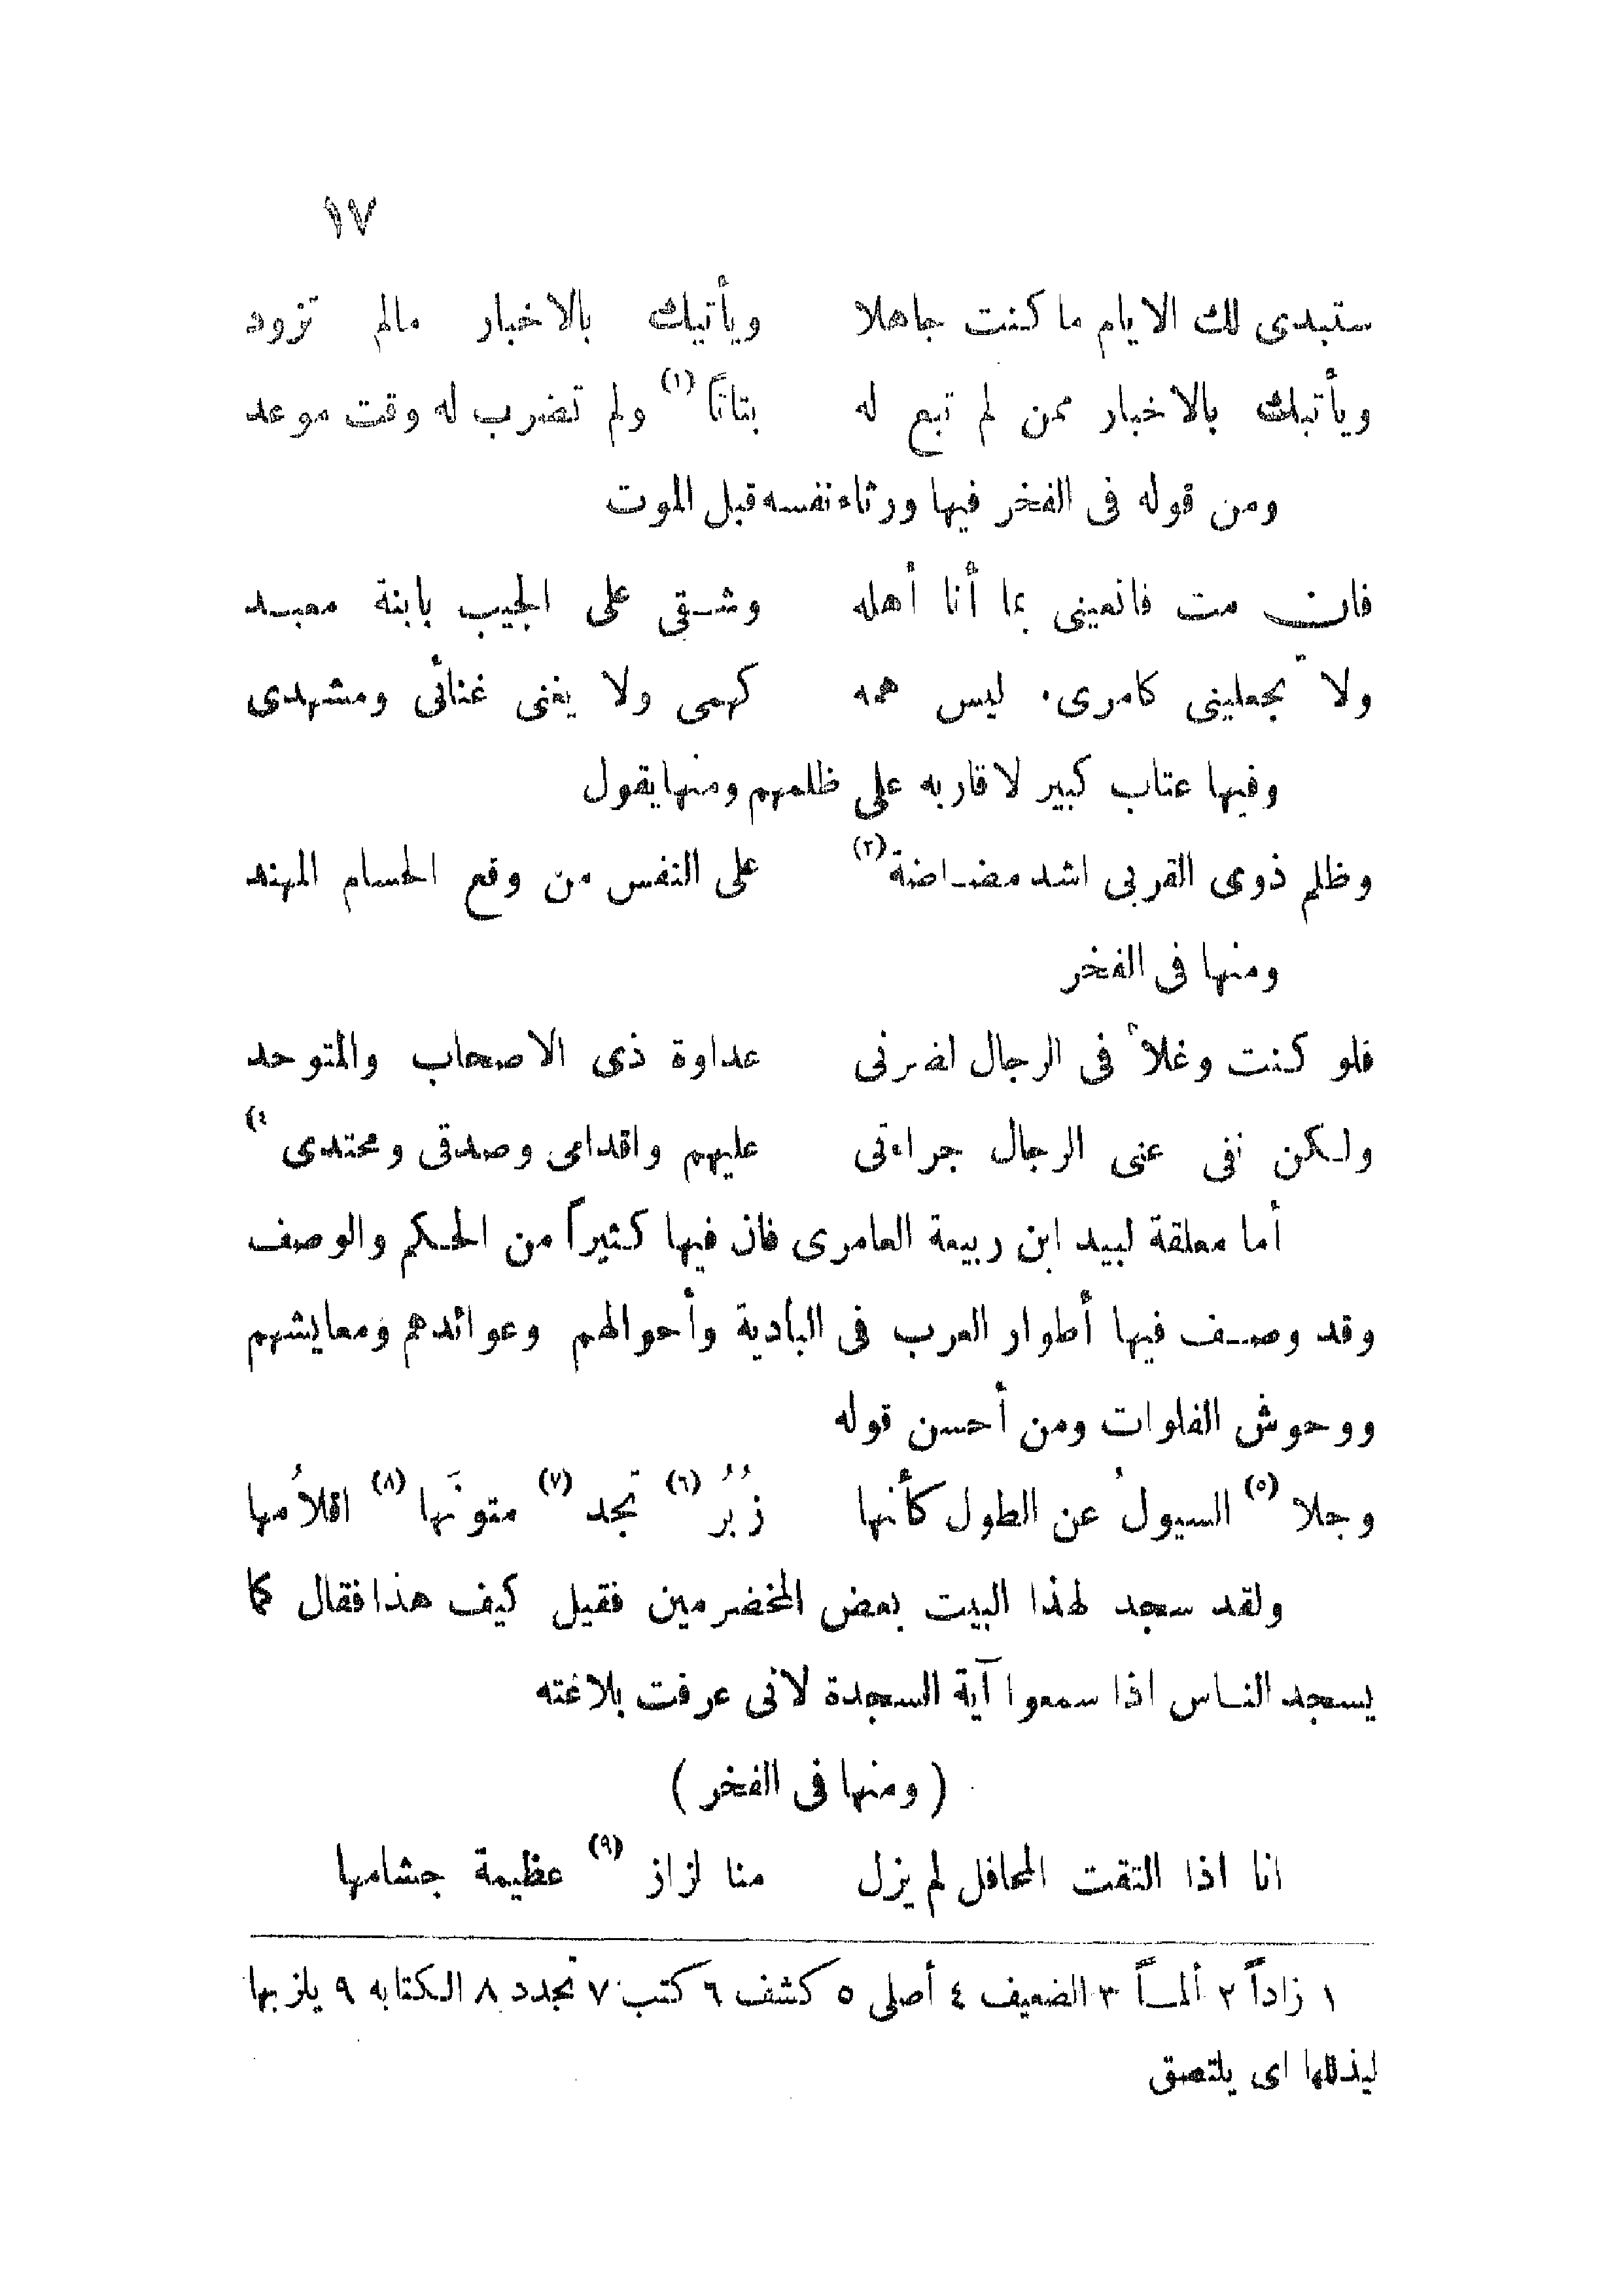 ١٧
ستبدى لك الايام ما كنت جاهلا ويأتيك بالاخبار مالم تزود
ويأتيك بالاخبار ممن لم تبع له بتاتاً (١) ولم تضرب له وقت موعد
ومن قوله فى الفخر فيها ورثاء نفسه قبل الموت
فان مت فانعينى بما أنا أهله وشقى على الجيب يابنة معبد
ولا تجعلينى كامرى ليس همه كهمى ولا يغنى غنائى ومشهدى
وفيها عتاب كبير لاقاربه على ظلمهم ومنها يقول
وظلم ذوى القربى اشد مضاضة (٢) على النفس من وقع الحسام المهند
ومنها فى الفخر
فلو كنت وغلاً فى الرجال لضرنى عداوة ذى الاصحاب والمتوحد
ولكن نفى عنى الرجال جراءتى عليهم واقدامى وصدقى ومحتدى (٤)
أما معلقة لبيد ابن ربيعة العامرى فان فيها كثيراً من الحكم والوصف
وقد وصف فيها أطوار العرب فى البادية وأحوالهم وعوائدهم ومعايشهم
ووحوش الفلوات ومن أحسن قوله
وجلا (٥) السيولُ عن الطول كأنها زُبُر (٦) تجد (٧) متونَها (٨) اقلاُمها
ولقد سجد لهذا البيت بعض المخضرمين فقيل كيف هذا فقال كما
يسجد الناس اذا سمعوا آية السجدة لانى عرفت بلاغته
( ومنها فى الفخر )
انا اذا التقت المحافل لم يزل منا لزاز (٩) عظيمة جشامها
١ زاداً ٢ ألماً ٣ الضعيف ٤ أصلى ٥ كشف ٦ كتب ٧ تجدد ٨ الكتابه ٩ يلز بها
ليذللها اى يلتصق